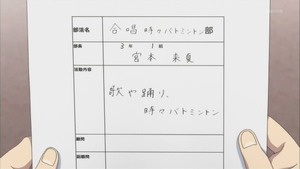 部活名 合唱時々バトミントン部
部長 3年 1組
宮本 来夏
活動内容
歌や踊り、
時々バトミントン
顧問
副顧問